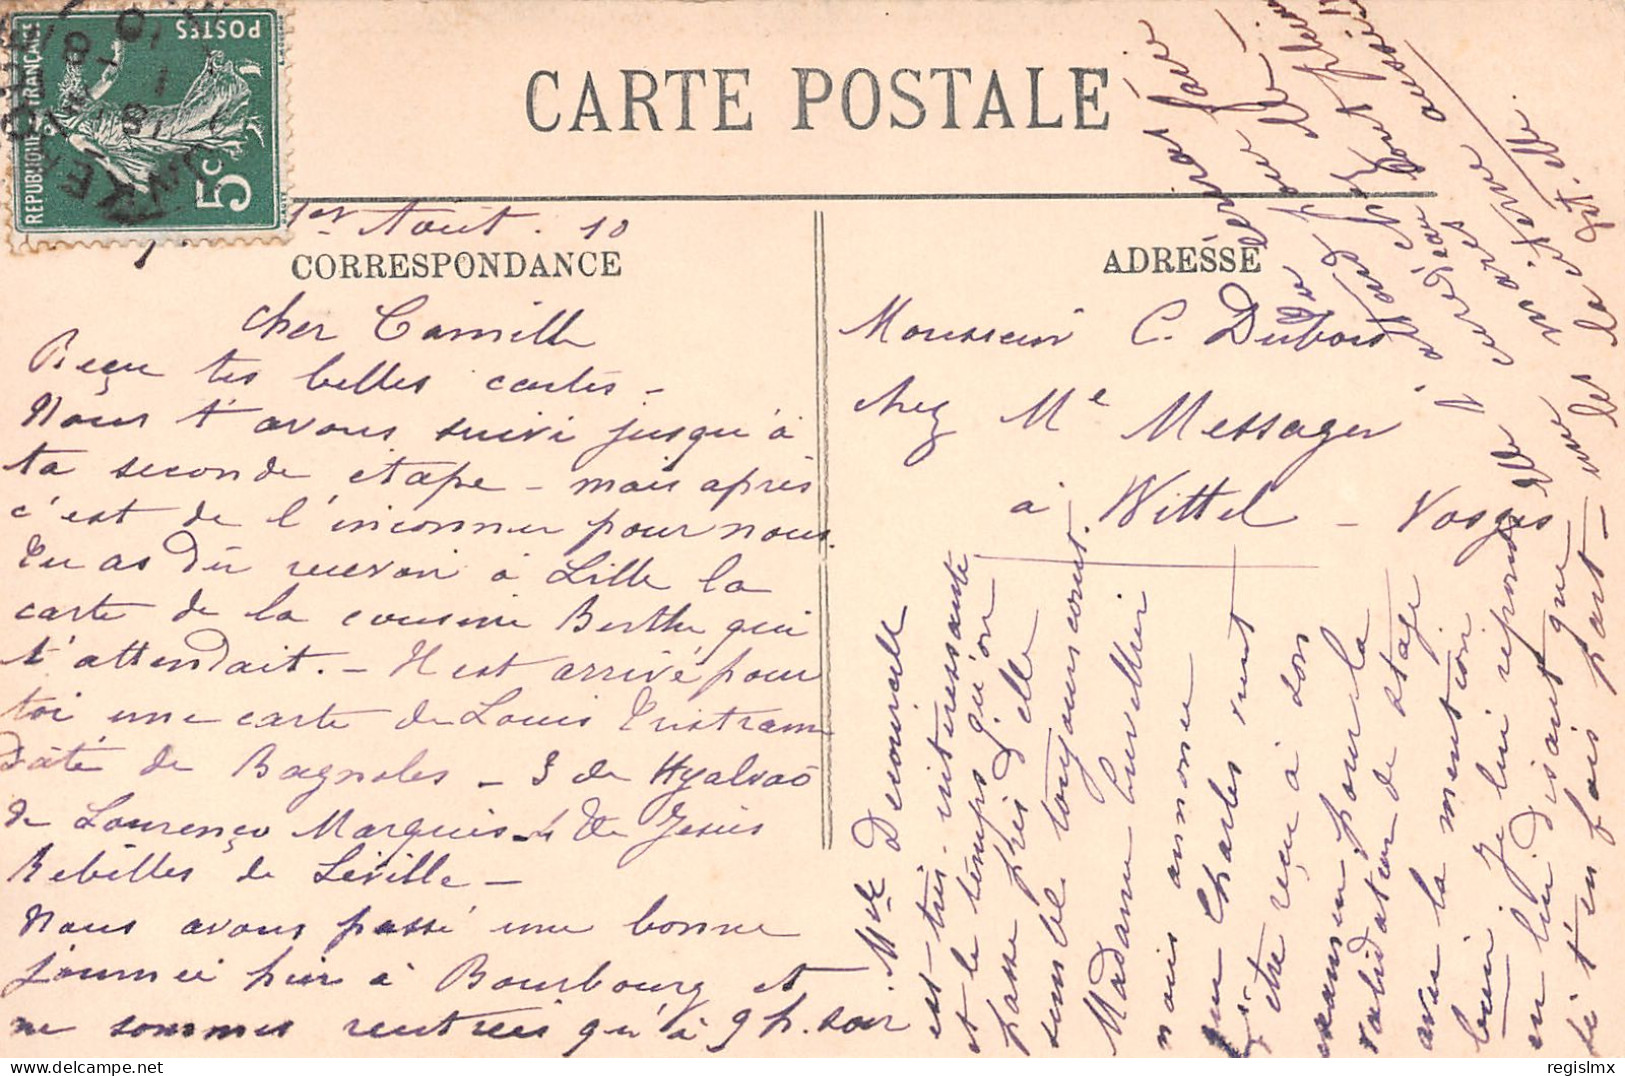 REPUBLIQUE FRANÇAISE
POSTES
5c
CARTE POSTALE
1er Août. 10
CORRESPONDANCE
Cher Camille
Reçu tes belles cartes -
Nous t'avons suivi jusqu'à
ta seconde étape - mais après
c'est de l'inconnu pour nous.
Tu as dû recevoir à Lille la
carte de la cousine Berthe qui
t'attendait. - Il est arrivé pour
toi une carte de Louis Tristram
daté de Bagnoles - 3 de Hyalvao
de Lourenço Marquis - 4 de Jesus
Rebilles de Séville -
Nous avons passé une bonne
journée hier à Bourbourg et
ne sommes rentrées qu'à 9 h. soir
ADRESSE
Monsieur C. Dubois
chez Me Messager
à Wittel - Vosges
Melle Decourcelle
est très intéressante
et le temps qu'on
passe près d'elle
semble toujours court.
Madame Cuvellier
nous annonce
que Charles vient
d'être reçu à son
examen pour la
validation de stage
avec la mention
bien Je lui réponds
en lui disant que
je t'en fais part - une
regislmx